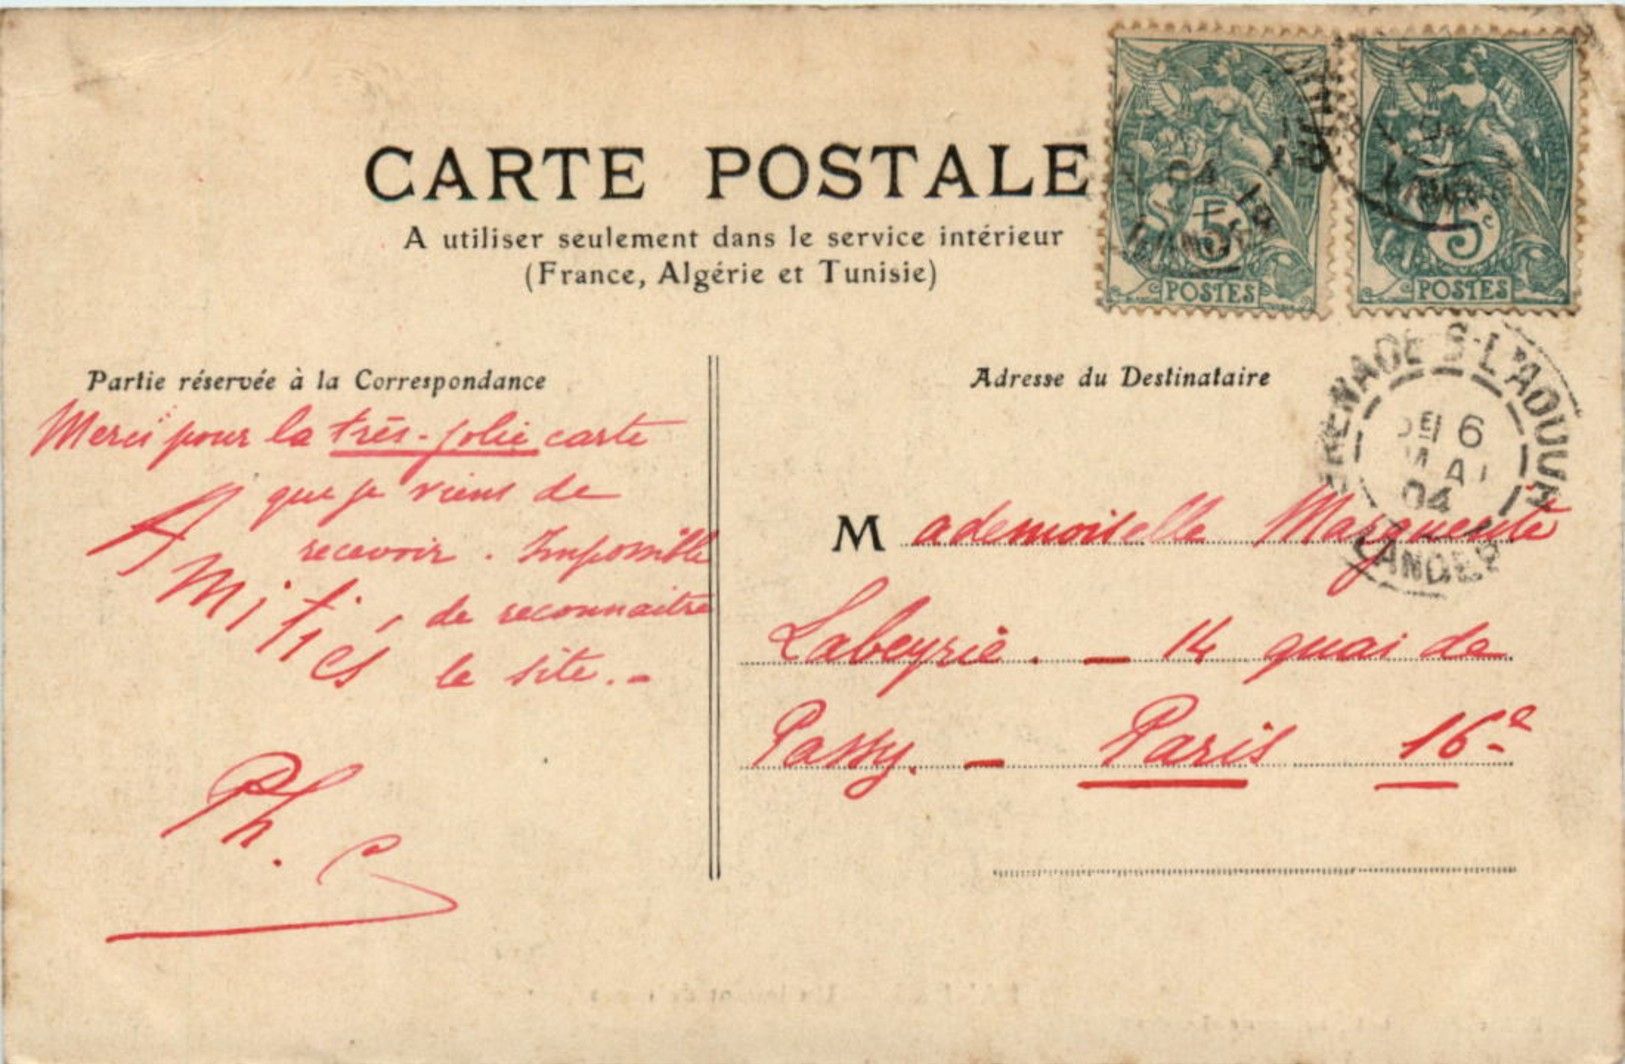 CARTE POSTALE
A utiliser seulement dans le service intérieur
(France, Algérie et Tunisie)
5
POSTES
5c
POSTES
Partie réservée à la Correspondance
Merci pour la très-jolie carte
que je viens de
recevoir. Impossible
de reconnaitre
le site.-
Amitiés
Ph.
Adresse du Destinataire
Mademoiselle Marguerite
Labeyrie. - 14 quai de
Passy. - Paris 16e
GRENADE-S-L'ADOUR
6
MAI
04
LANDES